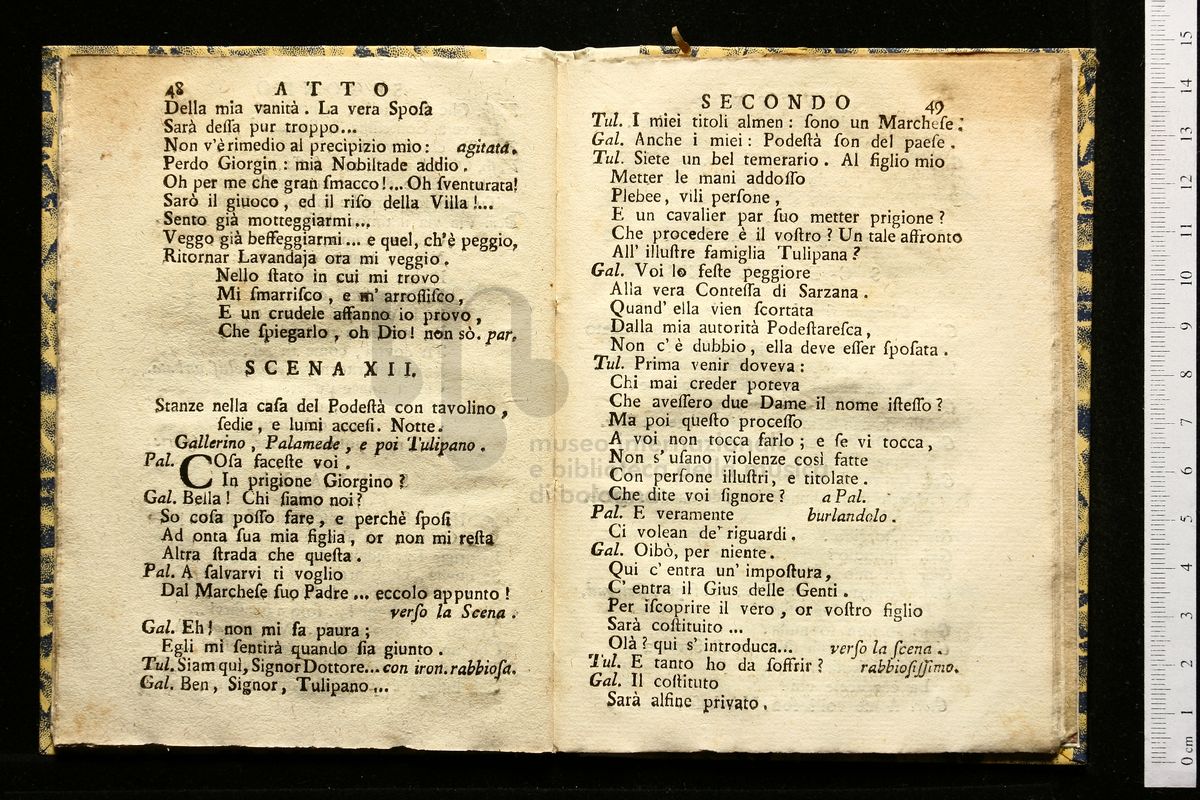 48 ATTO
Della mia vanità. La vera Spoſa
Sarà deſſa pur troppo...
Non v'è rimedio al precipizio mio: agitata.
Perdo Giorgin: mia Nobiltade addio.
Oh per me che gran ſmacco!... Oh ſventurata!
Sarò il giuoco, ed il riſo della Villa!...
Sento già motteggiarmi...
Veggo già beffeggiarmi... e quel, ch'è peggio,
Ritornar Lavandaja ora mi veggio.
Nello ſtato in cui mi trovo
Mi ſmarriſco, e m' arroſſiſco,
E un crudele affanno io provo,
Che ſpiegarlo, oh Dio! non sò. par.
SCENA XII.
Stanze nella caſa del Podeſtà con tavolino,
ſedie, e lumi acceſi. Notte.
Gallerino, Palamede, e poi Tulipano.
Pal. COſa faceſte voi.
In prigione Giorgino?
Gal. Bella! Chi ſiamo noi?
So coſa poſſo fare, e perchè ſpoſi
Ad onta ſua mia figlia, or non mi reſta
Altra ſtrada che queſta.
Pal. A ſalvarvi ti voglio
Dal Marcheſe ſuo Padre... eccolo appunto!
verſo la Scena.
Gal. Eh! non mi fa paura;
Egli mi ſentirà quando ſia giunto.
Tul. Siam quì, Signor Dottore... con iron. rabbioſa.
Gal. Ben, Signor, Tulipano...
SECONDO 49
Tul. I miei titoli almen: ſono un Marcheſe.
Gal. Anche i miei: Podeſtà ſon del paeſe.
Tul. Siete un bel temerario. Al figlio mio
Metter le mani addoſſo
Plebee, vili perſone,
E un cavalier par ſuo metter prigione?
Che procedere è il voſtro? Un tale affronto
All' illuſtre famiglia Tulipana?
Gal. Voi lo feſte peggiore
Alla vera Conteſſa di Sarzana.
Quand' ella vien ſcortata
Dalla mia autorità Podeſtareſca,
Non c' è dubbio, ella deve eſſer ſpoſata.
Tul. Prima venir doveva:
Chi mai creder poteva
Che aveſſero due Dame il nome iſteſſo?
Ma poi queſto proceſſo
A voi non tocca farlo; e ſe vi tocca,
Non s' uſano violenze così fatte
Con perſone illuſtri, e titolate.
Che dite voi ſignore? a Pal.
Pal. E veramente burlandolo.
Ci volean de' riguardi.
Gal. Oibò, per niente.
Qui c' entra un' impoſtura,
C' entra il Gius delle Genti.
Per iſcoprire il vero, or voſtro figlio
Sarà coſtituito...
Olà? qui s' introduca... verſo la ſcena.
Tul. E tanto ho da ſoffrir? rabbioſiſſimo.
Gal. Il coſtituto
Sarà alfine privato.
museo internazionale
e biblioteca della musica
di bologna
0 cm 1 2 3 4 5 6 7 8 9 10 11 12 13 14 15